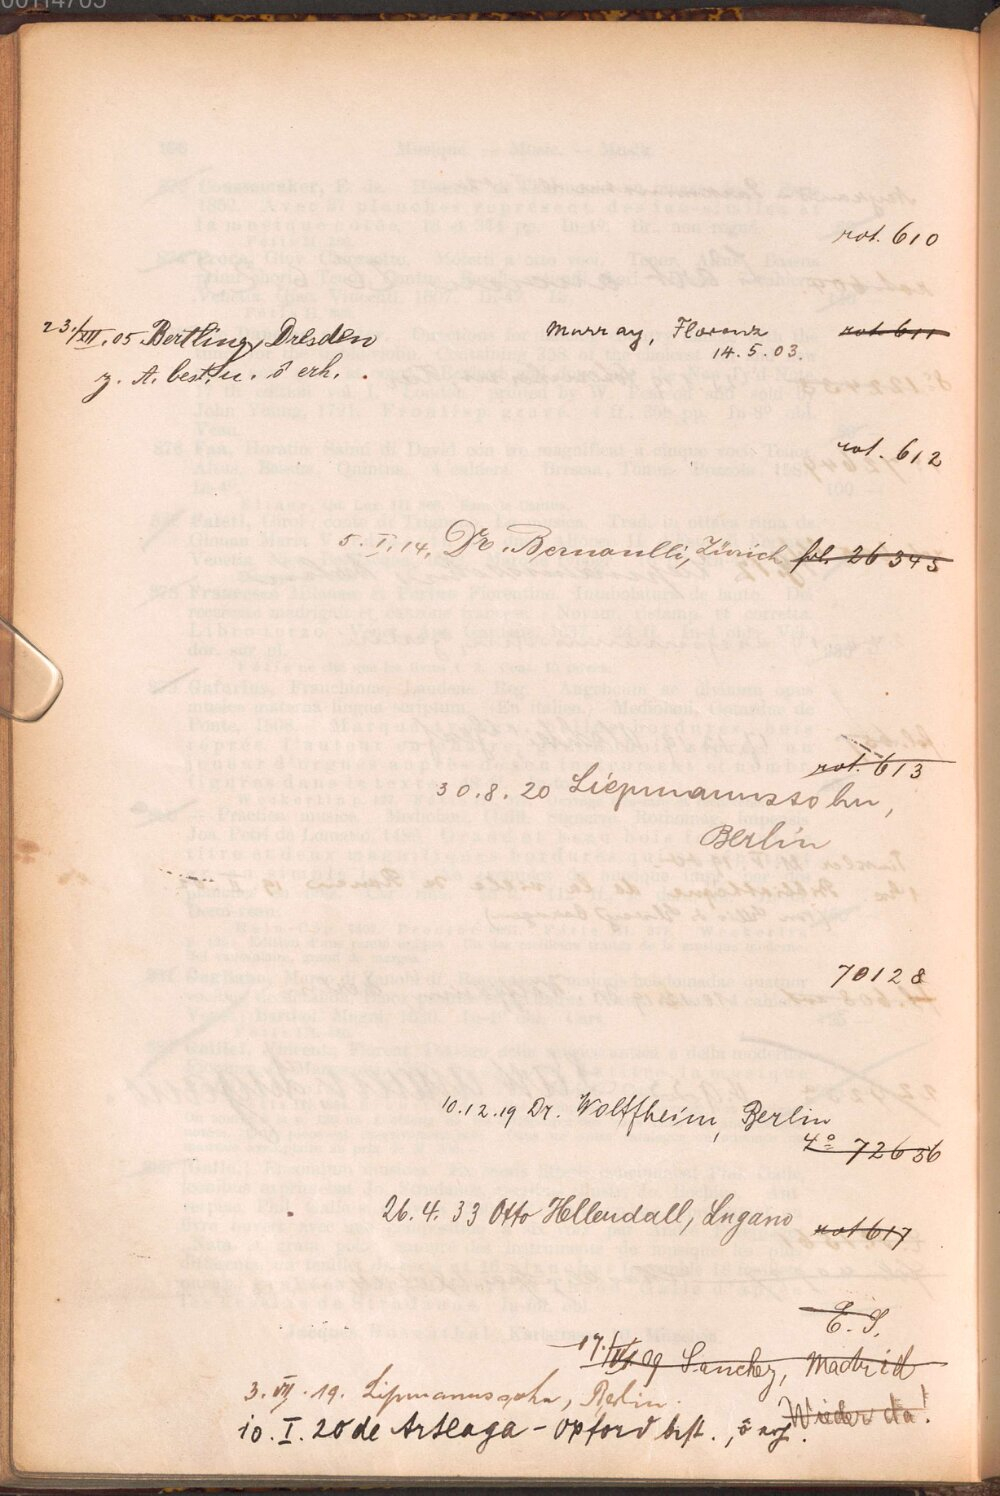 rot. 610
23./XII. 05 Bertling, Dresden
z. A. best. u. ō erh.
Murray, Florenz
14. 5. 03.
rot 611
rot. 612
5. I. 14. Dr. Bernoulli, Zürich fol. 26345
rot. 613
30. 8. 20 Liepmannssohn,
Berlin
70128
10.12.19 Dr. Wolffheim, Berlin
4º 72636
26. 4. 33 Otto Hellendall, Lugano rot 617
E. S.
09 Sanchez, Madrid
3. VII. 19. Lipmannssohn, Berlin.
Wieder da!
10. I. 20 de Arteaga - Oxford best.